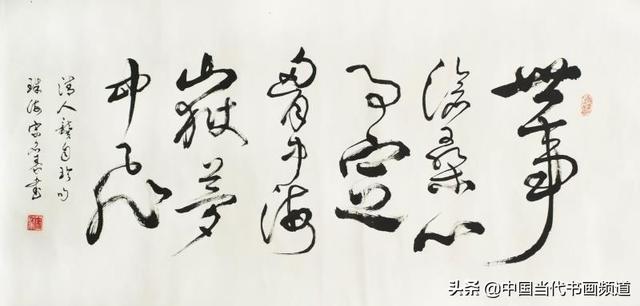 世事
滄桑心
事定
胸中海
嶽夢
中飛
清人龔自珍句
珠海宋書
头条 @中国当代书画频道